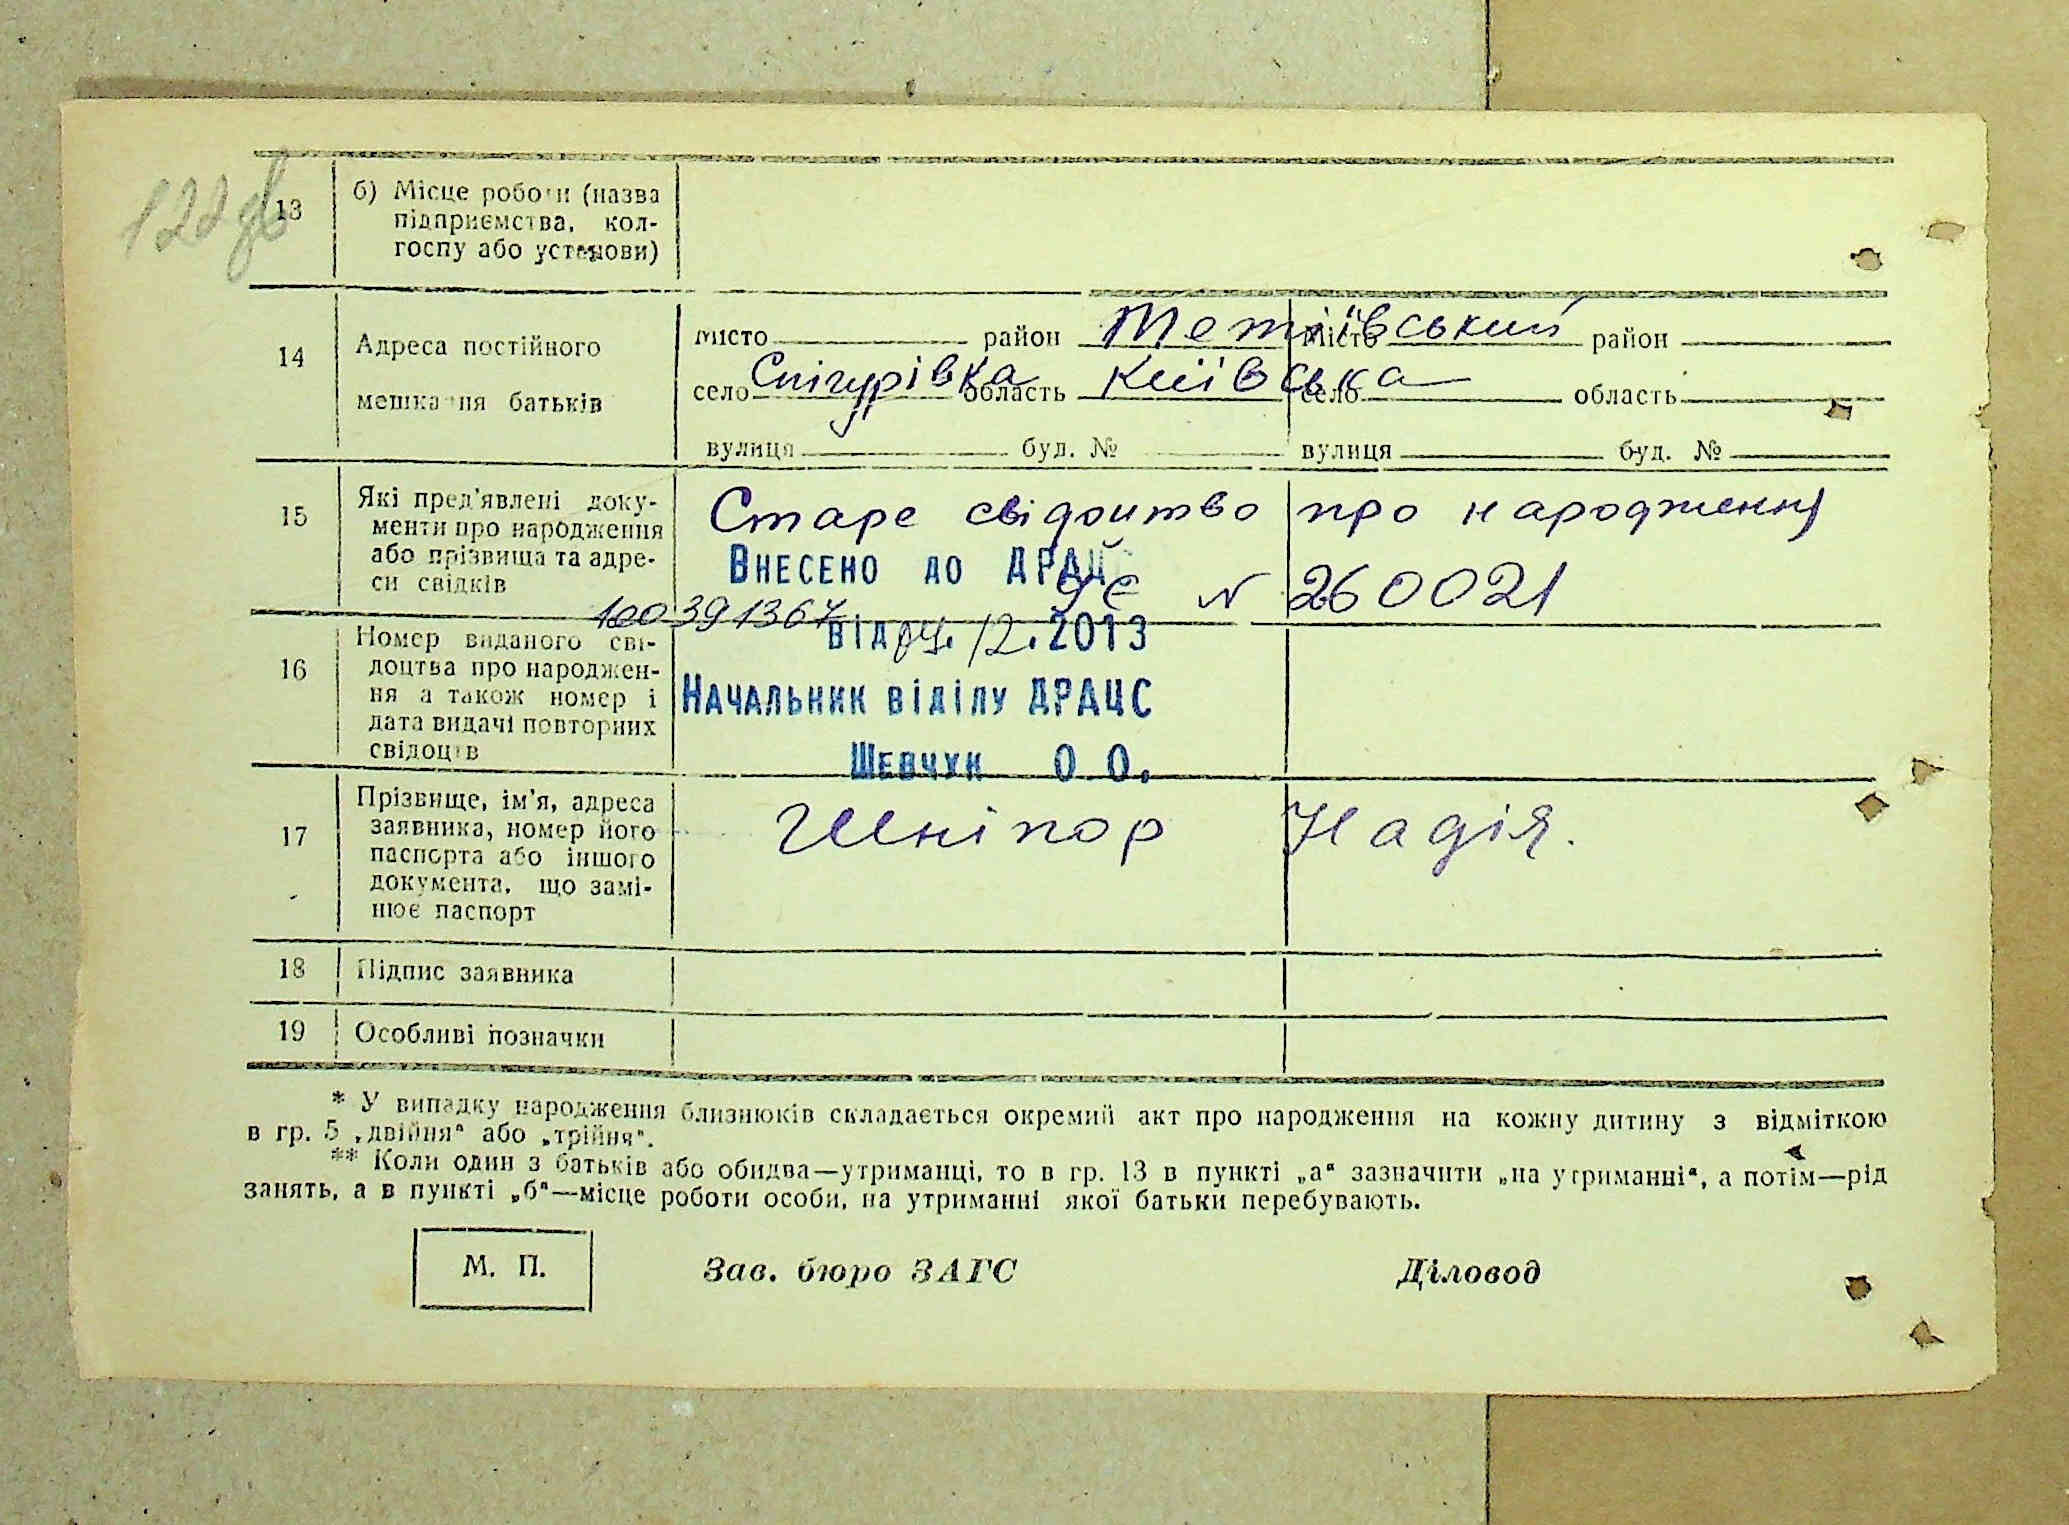 122 зв
13 б) Місце роботи (назва
підприємства, кол-
госпу або установи)
14 Адреса постійного
мешкання батьків
місто район Тетіївський місто район
село Снігурівка область Київська село область
вулиця буд. № вулиця буд. №
15 Які пред'явлені доку-
менти про народження
або прізвища та адре-
си свідків
Старе свідоцтво про народження
N 260021
Внесено до ДРАЦ
100391367
від 04.12.2013
Начальник відділу ДРАЦС
Шевчук О О.
16 Номер виданого сві-
доцтва про народжен-
ня а також номер і
дата видачі повторних
свідоцтв
17 Прізвище, ім'я, адреса
заявника, номер його
паспорта або іншого
документа, що замі-
нює паспорт
Шніпор Надія.
18 Підпис заявника
19 Особливі позначки
* У випадку народження близнюків складається окремий акт про народження на кожну дитину з відміткою
в гр. 5 „двійня" або „трійня".
** Коли один з батьків або обидва—утриманці, то в гр. 13 в пункті „а" зазначити „на утриманні", а потім—рід
занять, а в пункті „б"—місце роботи особи, на утриманні якої батьки перебувають.
М. П. Зав. бюро ЗАГС Діловод